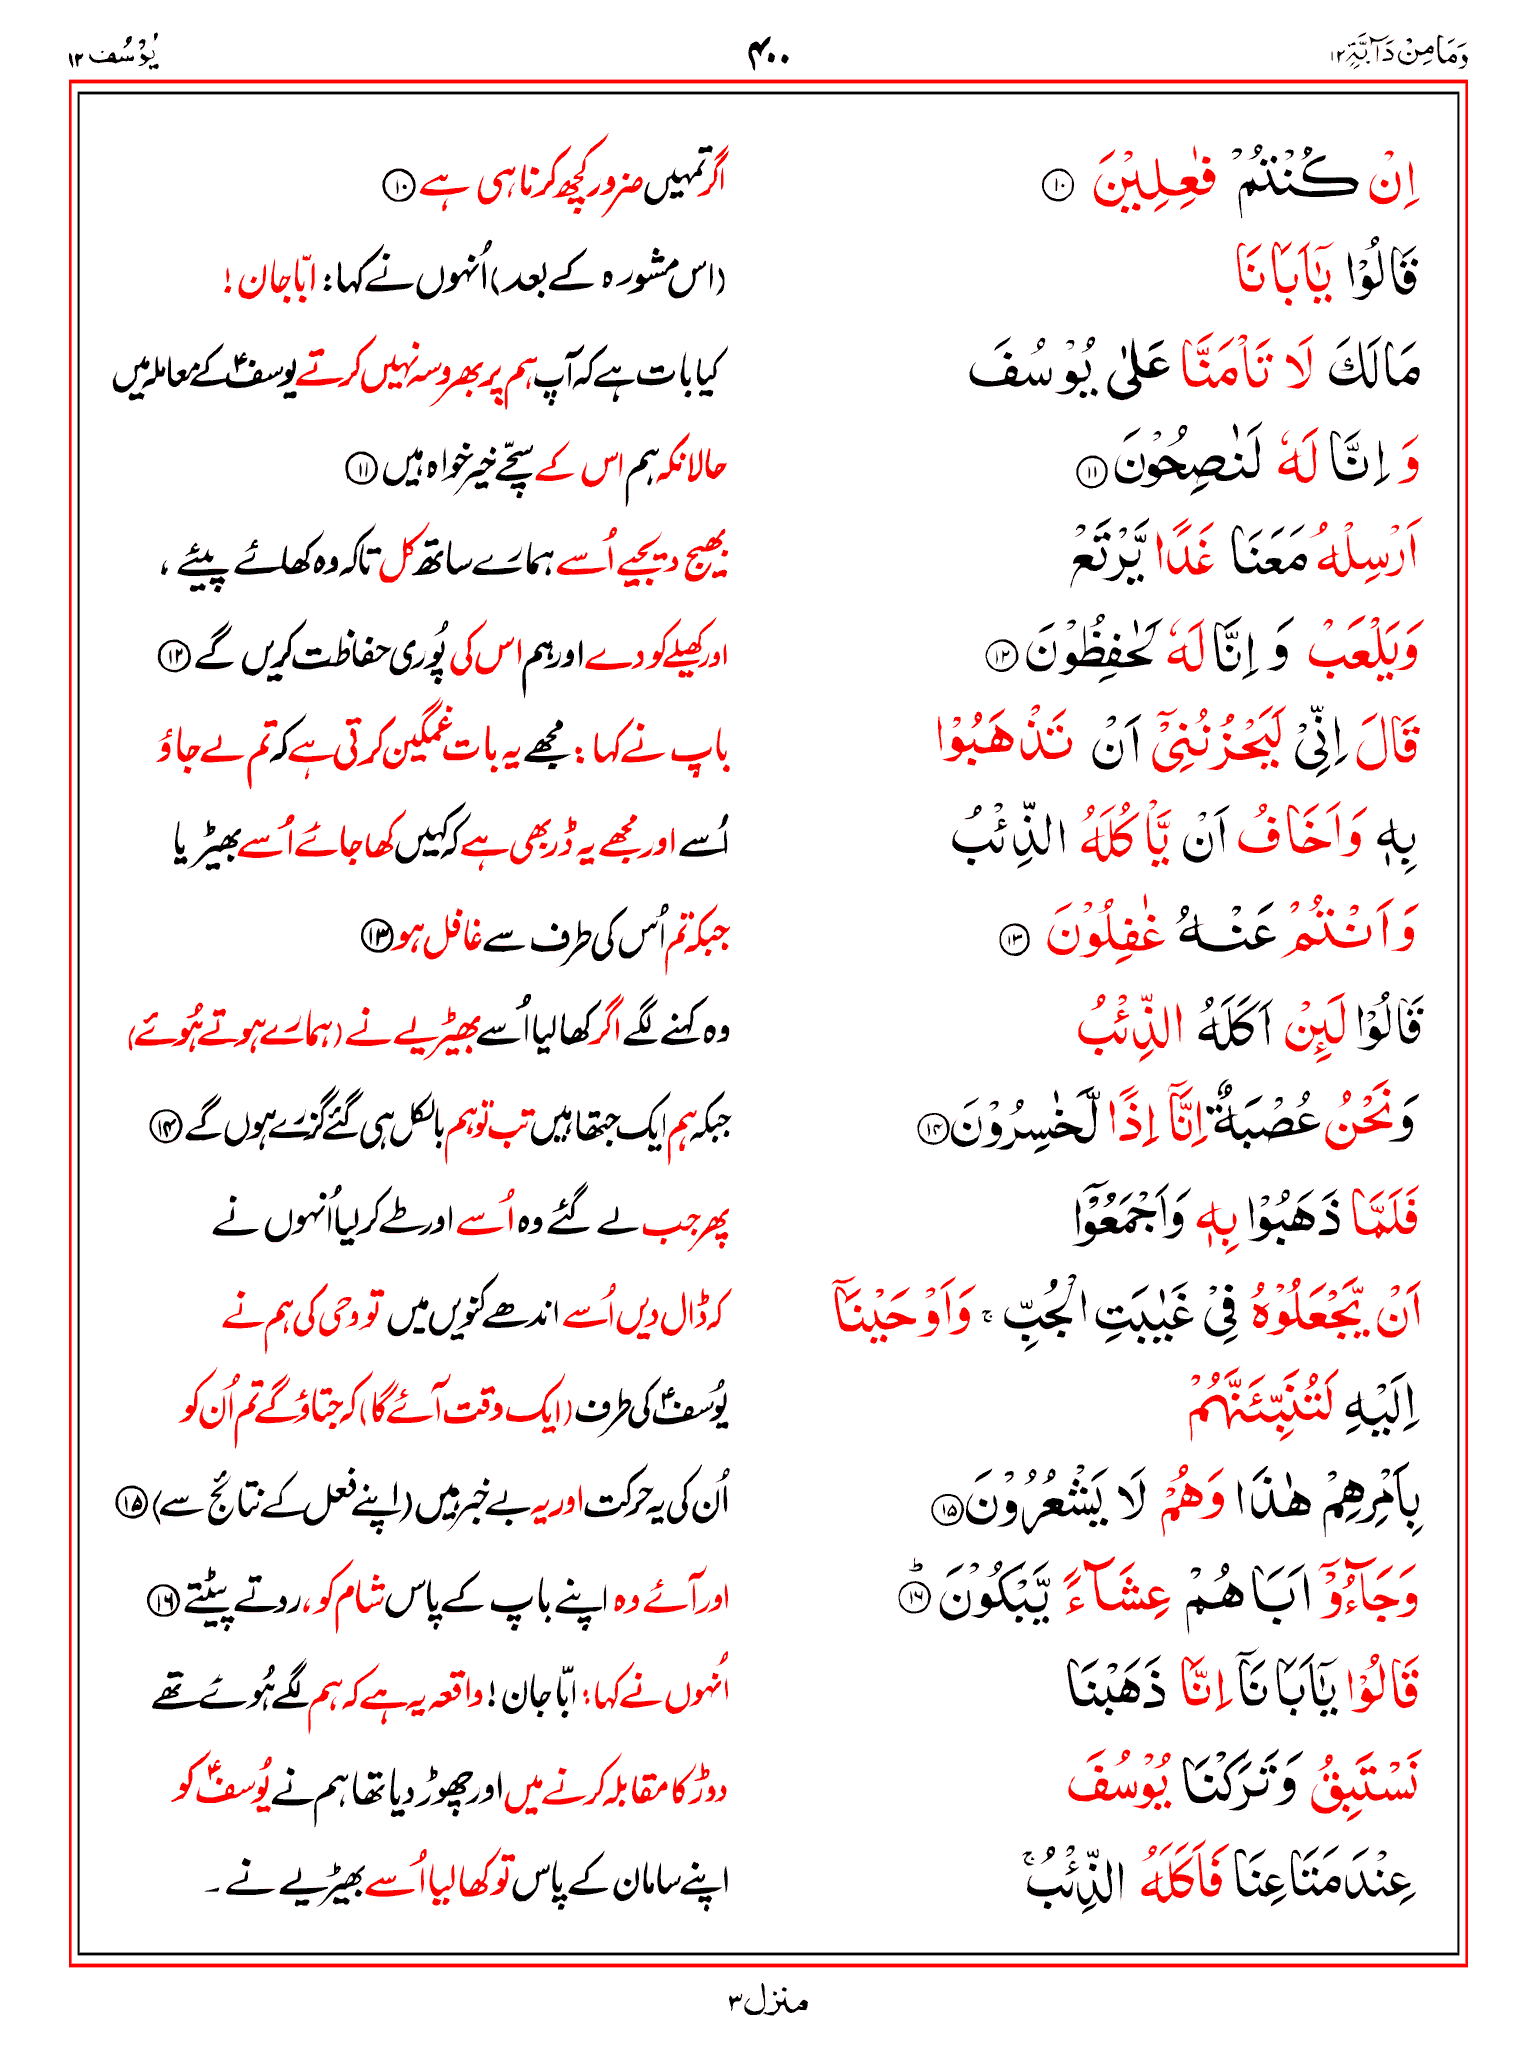 وَمَا مِنْ دَآبَّةٍ ۱۲ ۴۰۰ یُوْسُف ۱۲
اِنْ كُنْتُمْ فٰعِلِيْنَ ۝۱۰ اگر تمہیں ضرور کچھ کرنا ہی ہے ۝۱۰
قَالُوْا يٰۤاَبَانَا (اس مشورہ کے بعد) اُنہوں نے کہا: ابّا جان!
مَالَكَ لَا تَاْمَنَّا عَلٰى يُوْسُفَ کیا بات ہے کہ آپ ہم پر بھروسہ نہیں کرتے یوسفؑ کے معاملہ میں
وَ اِنَّا لَهٗ لَنٰصِحُوْنَ ۝۱۱ حالانکہ ہم اس کے سچّے خیر خواہ ہیں ۝۱۱
اَرْسِلْهُ مَعَنَا غَدًا يَّرْتَعْ بھیج دیجیے اُسے ہمارے ساتھ کل تاکہ وہ کھائے پیئے،
وَيَلْعَبْ وَ اِنَّا لَهٗ لَحٰفِظُوْنَ ۝۱۲ اور کھیلے کودے اور ہم اس کی پُوری حفاظت کریں گے ۝۱۲
قَالَ اِنِّىْ لَيَحْزُنُنِىْۤ اَنْ تَذْهَبُوْا باپ نے کہا: مجھے یہ بات غمگین کرتی ہے کہ تم لے جاؤ
بِهٖ وَاَخَافُ اَنْ يَّاْكُلَهُ الذِّئْبُ اُسے اور مجھے یہ ڈر بھی ہے کہ کہیں کھا جائے اُسے بھیڑیا
وَاَنْتُمْ عَنْهُ غٰفِلُوْنَ ۝۱۳ جبکہ تم اُس کی طرف سے غافل ہو ۝۱۳
قَالُوْا لَئِنْ اَكَلَهُ الذِّئْبُ وہ کہنے لگے اگر کھا لیا اُسے بھیڑیے نے (ہمارے ہوتے ہُوئے)
وَنَحْنُ عُصْبَةٌ اِنَّاۤ اِذًا لَّخٰسِرُوْنَ ۝۱۴ جبکہ ہم ایک جتھا ہیں تب تو ہم بالکل ہی گئے گزرے ہوں گے ۝۱۴
فَلَمَّا ذَهَبُوْا بِهٖ وَاَجْمَعُوْۤا پھر جب لے گئے وہ اُسے اور طے کر لیا اُنہوں نے
اَنْ يَّجْعَلُوْهُ فِىْ غَيٰبَتِ الْجُبِّ ۚ وَاَوْحَيْنَاۤ کہ ڈال دیں اُسے اندھے کنویں میں تو وحی کی ہم نے
اِلَيْهِ لَتُنَبِّئَنَّهُمْ یُوسفؑ کی طرف (ایک وقت آئے گا) کہ جتاؤ گے تم اُن کو
بِاَمْرِهِمْ هٰذَا وَهُمْ لَا يَشْعُرُوْنَ ۝۱۵ اُن کی یہ حرکت اور یہ بے خبر ہیں (اپنے فعل کے نتائج سے) ۝۱۵
وَجَآءُوْۤ اَبَاهُمْ عِشَآءً يَّبْكُوْنَ ۝۱۶ؕ اور آئے وہ اپنے باپ کے پاس شام کو، روتے پیٹتے ۝۱۶
قَالُوْا يٰۤاَبَانَاۤ اِنَّا ذَهَبْنَا اُنہوں نے کہا: ابّا جان! واقعہ یہ ہے کہ ہم لگے ہُوئے تھے
نَسْتَبِقُ وَتَرَكْنَا يُوْسُفَ دوڑ کا مقابلہ کرنے میں اور چھوڑ دیا تھا ہم نے یُوسفؑ کو
عِنْدَ مَتَاعِنَا فَاَكَلَهُ الذِّئْبُ ۚ اپنے سامان کے پاس تو کھا لیا اُسے بھیڑیے نے۔
منزل ۳